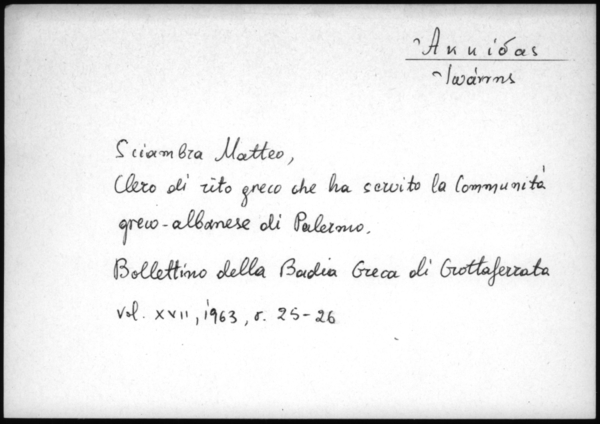 Ἀκκίδας
Ἰωάννης
Sciambra Matteo,
Clero di rito greco che ha servito la Communità
greco-albanese di Palermo.
Bollettino della Badia Greca di Grottaferrata
vol. XVII, 1963, σ. 25-26